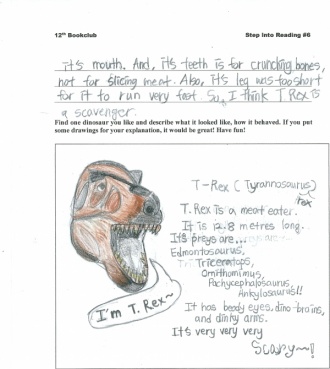 12th Bookclub Step Into Reading #6
it's mouth. And, it's teeth is for crunching bones,
not for slicing meat. Also, it's leg was too short
for it to run very fast. So, I think T Rex is
a scavenger.
Find one dinosaur you like and describe what it looked like, how it behaved. If you put
some drawings for your explanation, it would be great! Have fun!
T-Rex (Tyrannosaurus)
rex
T. Rex is a meat eater.
It is 12.8 metres long.
It's preys are...
Edmontosaurus,
Triceratops,
Ornithomimus,
Pachycephalosaurus,
Ankylosaurus!!
It has beedy eyes, dino-brains,
and dinky arms.
It's very very very
Scary~!
I'm T. Rex~